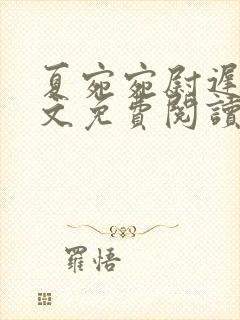 夏宛宛尉遲
文免費閱讀
羅悟